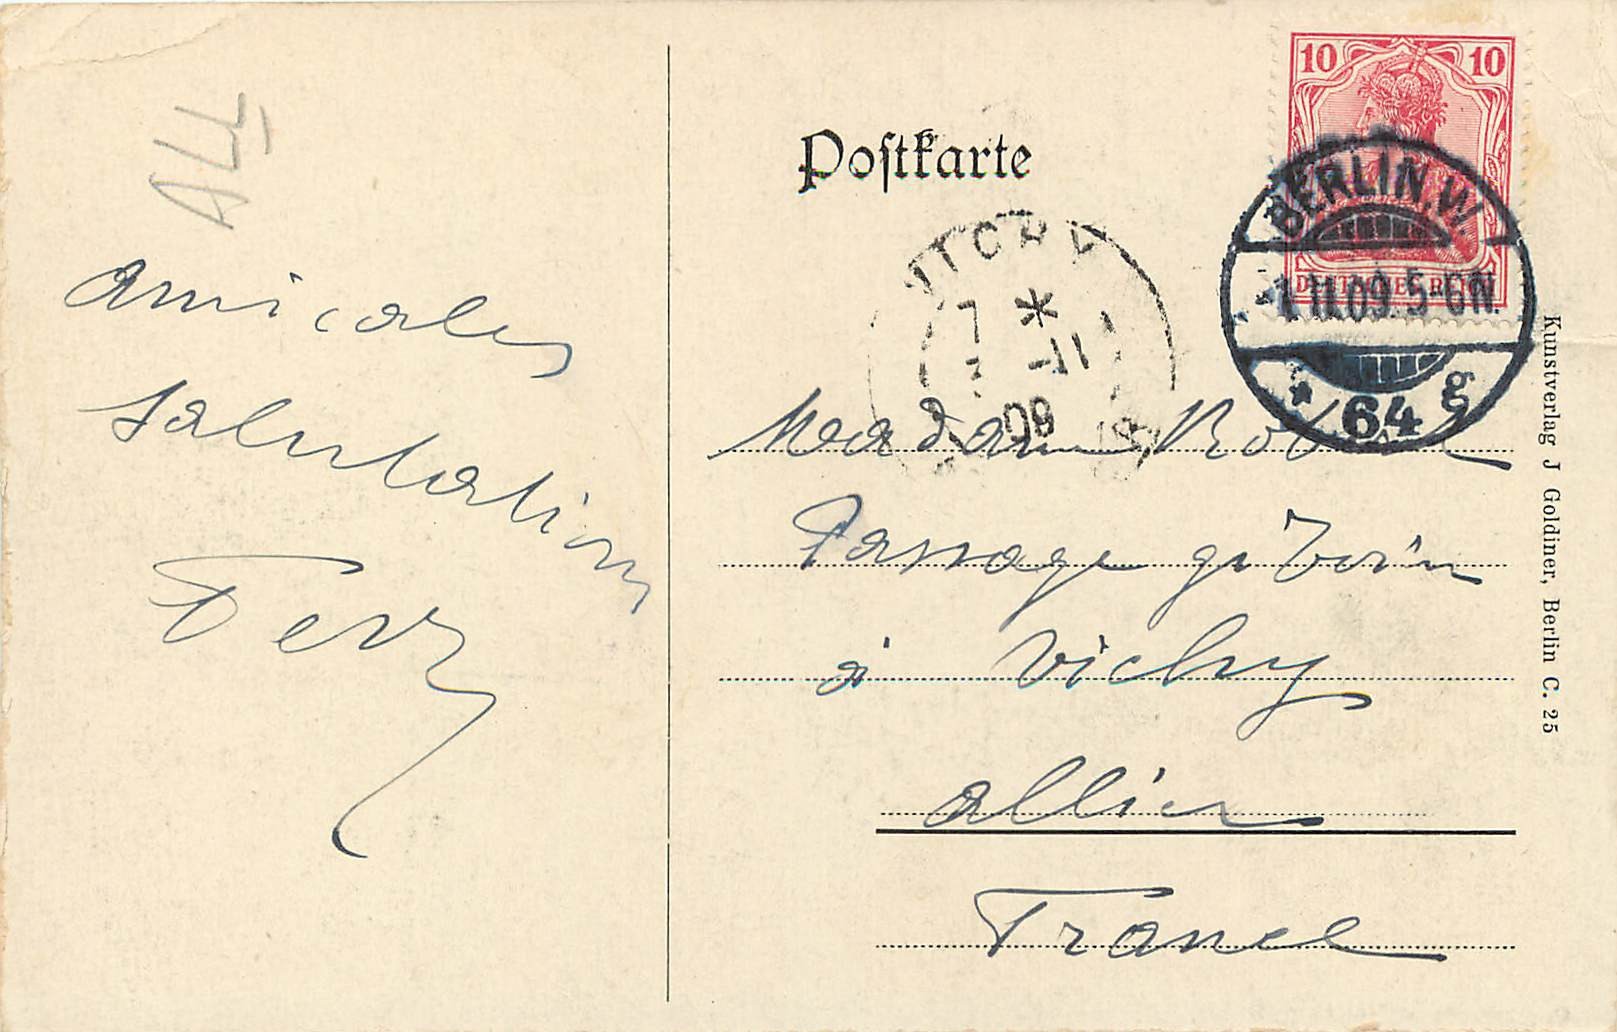 ALL
amicales
salutations
Postkarte
10 10
DEUTSCHES REICH
BERLIN.W.
1.11.09. 5-6N.
* 64 g
VICHY
7 *
3 -11
09
Madame
Passage giboin
à Vichy
allier
France
Kunstverlag J Goldiner, Berlin C. 25